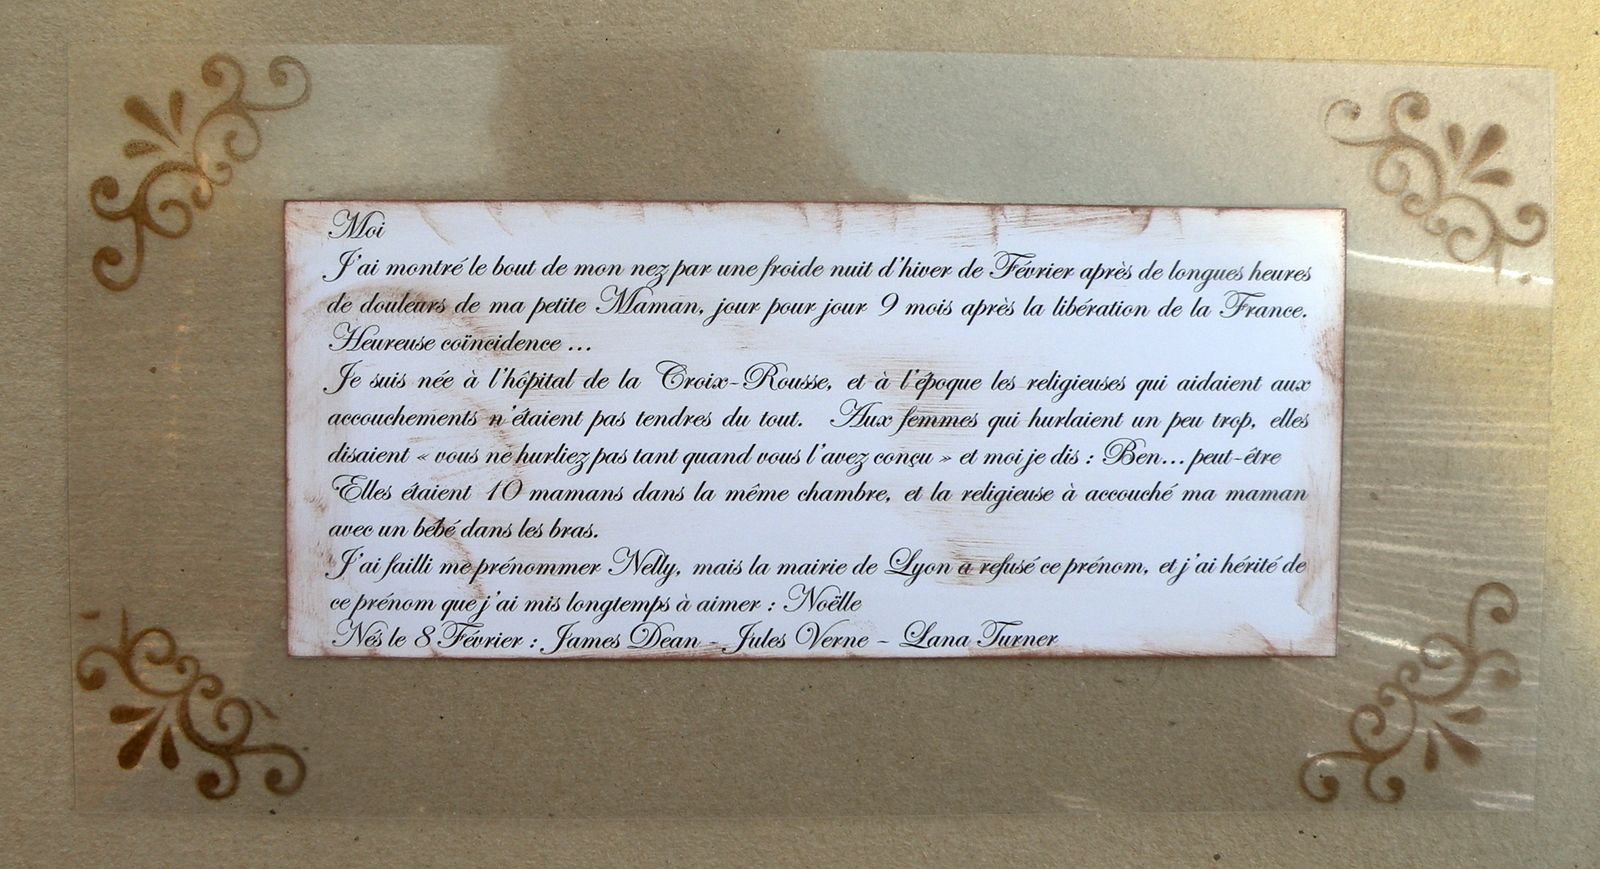 Moi
J'ai montré le bout de mon nez par une froide nuit d'hiver de Février après de longues heures
de douleurs de ma petite Maman, jour pour jour 9 mois après la libération de la France.
Heureuse coïncidence ...
Je suis née à l'hôpital de la Croix-Rousse, et à l'époque les religieuses qui aidaient aux
accouchements n'étaient pas tendres du tout. Aux femmes qui hurlaient un peu trop, elles
disaient « vous ne hurliez pas tant quand vous l'avez conçu » et moi je dis : Ben... peut-être
Elles étaient 10 mamans dans la même chambre, et la religieuse à accouché ma maman
avec un bébé dans les bras.
J'ai failli me prénommer Nelly, mais la mairie de Lyon a refusé ce prénom, et j'ai hérité de
ce prénom que j'ai mis longtemps à aimer : Noëlle
Nés le 8 Février : James Dean - Jules Verne - Lana Turner